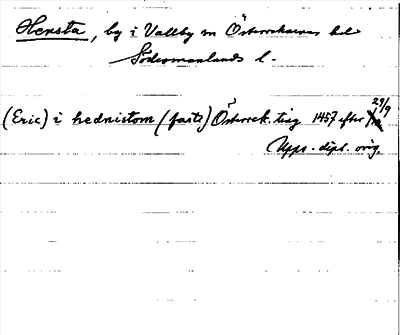 Hensta, by i Vallby sn Österrekarnes hd
Södermanlands l.
29/9
(Eric) i hednistom (fasta) Österrek. ting 1457 efter
Upps. dipl. orig.